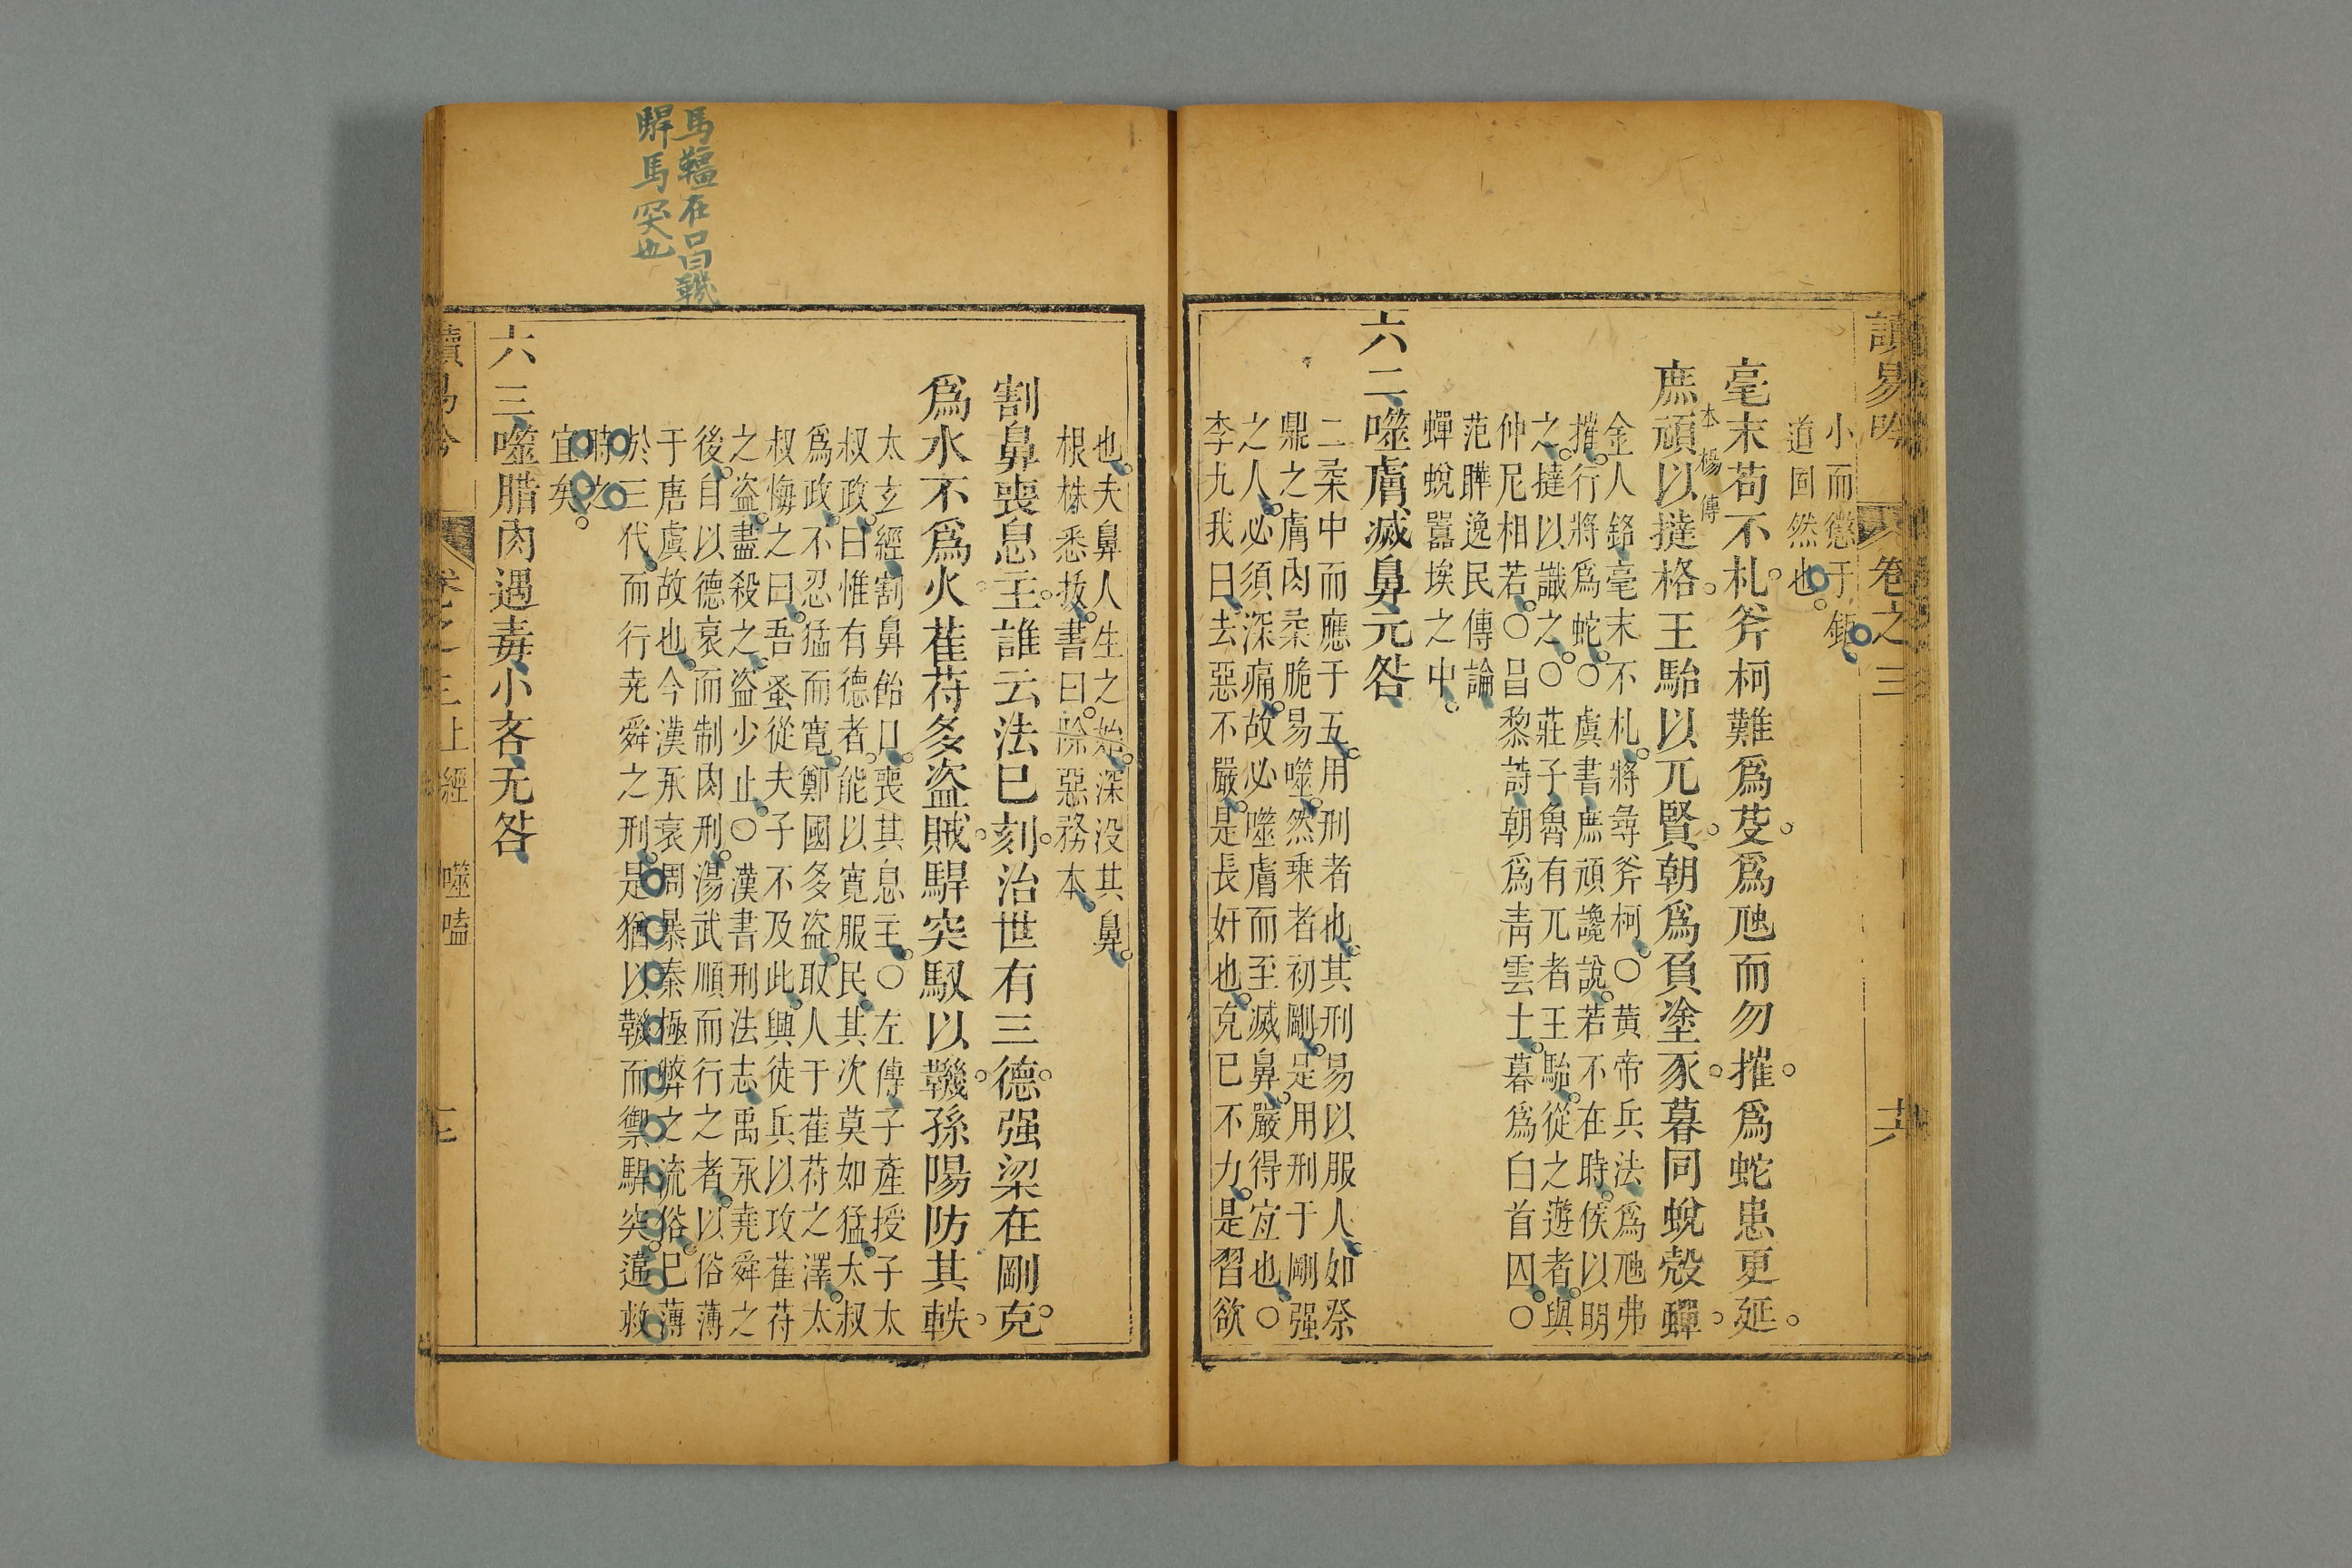 讀易吟
卷之三
小而懲于鉅
道固然也。
毫末苟不札。斧柯難爲芟。爲虺而勿摧。爲蛇患更延。
庶頑以撻格。王駘以兀賢。朝爲負塗豕。暮同蛻殼蟬。
本楊傳
金人銘毫末不札。將尋斧柯○黃帝兵法爲虺弗
摧。行將爲蛇。○虞書庶頑讒說。若不在時。侯以明
之。撻以識之。○莊子魯有兀者王駘。從之遊者。與
仲尼相若。○昌黎詩朝爲靑雲士。暮爲白首囚。○
范曄逸民傳論
蟬蛻囂埃之中。
六二噬膚滅鼻无咎
二柔中而應于五。用刑者也。其刑易以服人。如祭
鼎之膚肉柔脆易噬。然乘者初剛。是用刑于剛强
之人。必須深痛。故必噬膚而至滅鼻。嚴得宜也。○
李九我曰去惡不嚴。是長奸也。克巳不力。是習欲
也。夫鼻人生之始。深没其鼻。
根株悉拔。書曰。除惡務本
割鼻喪息主。誰云法巳刻。治世有三德。强梁在剛克。
爲水不爲火。萑苻多盗賊。駻突馭以鞿。孫陽防其軼。
太玄經割鼻飴口。喪其息主。○左傳子產授子太
叔政。曰惟有德者。能以寛服民。其次莫如猛。太叔
爲政。不忍猛而寛。鄭國多盗。取人于萑苻之澤。太
叔悔之曰。吾蚤從夫子不及此。興徒兵以攻萑苻
之盗。盡殺之。盗少止。○漢書刑法志。禹承堯舜之
後。自以德衰而制肉刑。湯武順而行之者。以俗薄
于唐虞故也。今漢承衰周暴秦極弊之流俗。巳薄
於三代。而行尭舜之刑。是猶以鞿而禦駻突。違救
時之
宜矣。
六三噬腊肉遇毒小吝无咎
馬韁在口曰鞿
駻馬突也
上經
噬嗑